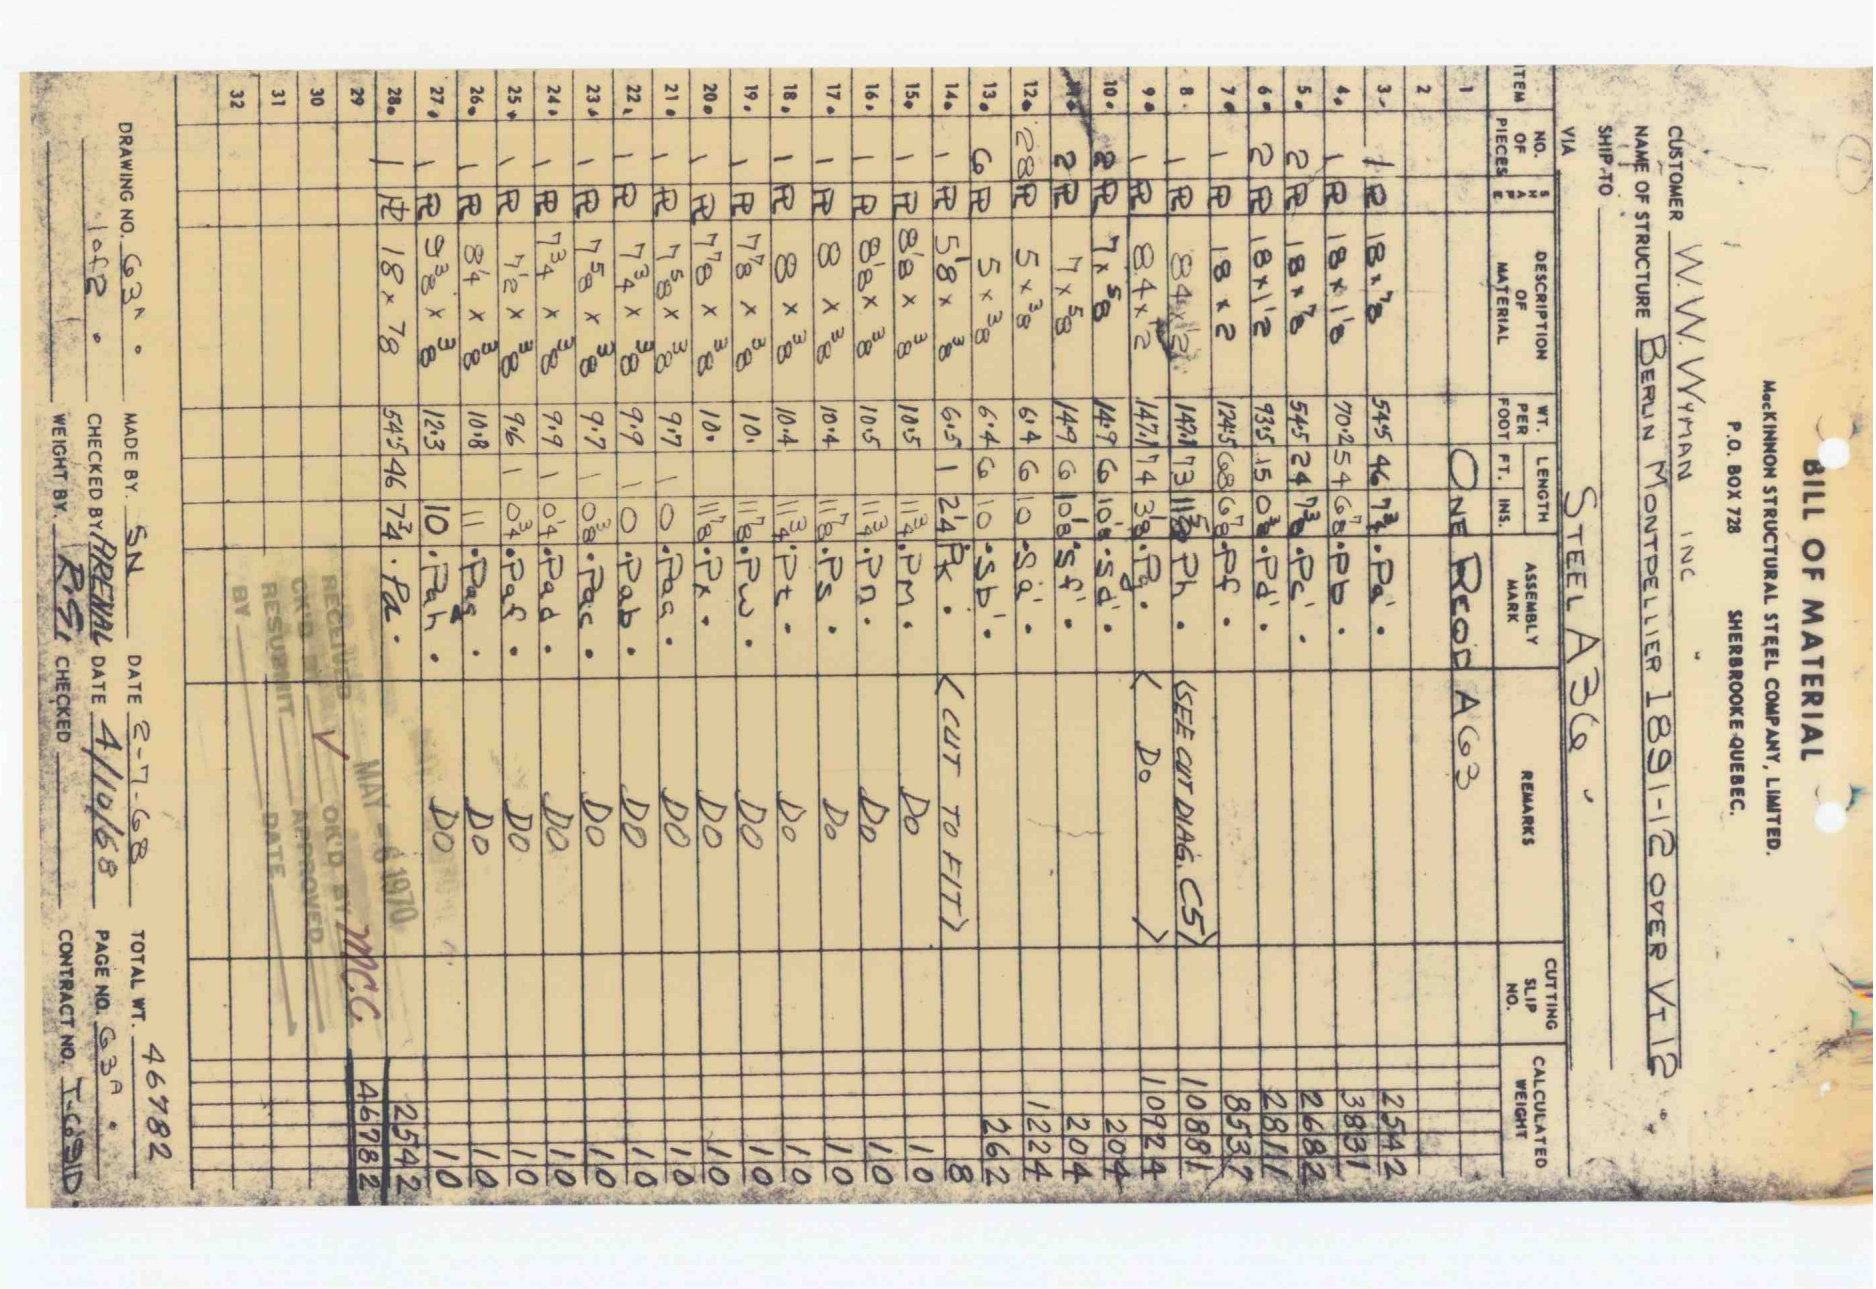 BILL OF MATERIAL
MacKINNON STRUCTURAL STEEL COMPANY, LIMITED.
P.O. BOX 728 SHERBROOKE-QUEBEC.
CUSTOMER W.W. WYMAN INC
NAME OF STRUCTURE BERLIN MONTPELLIER 1891-12 OVER VT 12
SHIP TO
VIA STEEL A36
ITEM NO. OF PIECES SHAPE DESCRIPTION OF MATERIAL WT. PER FOOT LENGTH FT. INS. ASSEMBLY MARK REMARKS CUTTING SLIP NO. CALCULATED WEIGHT
1 ONE REQ'D A G3
2
3. 1 PL 18 x 7/8 54.5 46 7 3/4 Pa' 2542
4. 1 PL 18 x 1 1/8 70.2 54 6 7/8 Pb' 3831
5. 2 PL 18 x 7/8 54.5 24 7 3/8 Pc' 2682
6. 2 PL 18 x 1 1/2 93.5 15 0 3/8 Pd' 2811
7. 1 PL 18 x 2 124.5 68 6 7/8 Pf 8537
8. 1 PL 84 x 1/2 147.1 73 Ph (SEE CUT DIAG. C5) 10881
9. 1 PL 84 x 1/2 147.1 74 3 1/8 Pg < DO > 10924
10. 2 PL 7 x 5/8 14.9 6 10 1/8 Sd' 204
11. 2 PL 7 x 5/8 14.9 6 10 1/8 Sf' 204
12. 28 PL 5 x 3/8 6.4 6 10 Sa' 1224
13. 6 PL 5 x 3/8 6.4 6 10 Sb' 262
14. 1 PL 5 1/8 x 3/8 6.5 1 2 1/4 Pk <CUT TO FIT> 8
15. 1 PL 8 1/8 x 3/8 10.5 11 3/4 Pm DO 10
16. 1 PL 8 1/8 x 3/8 10.5 11 3/4 Pn DO 10
17. 1 PL 8 x 3/8 10.4 11 7/8 Ps DO 10
18. 1 PL 8 x 3/8 10.4 11 3/4 Pt DO 10
19. 1 PL 7 7/8 x 3/8 10. 11 7/8 Pw DO 10
20. 1 PL 7 7/8 x 3/8 10. 11 7/8 Px DO 10
21. 1 PL 7 5/8 x 3/8 9.7 1 0 Paa DO 10
22. 1 PL 7 3/4 x 3/8 9.9 1 0 Pab DO 10
23. 1 PL 7 5/8 x 3/8 9.7 1 0 3/8 Pac DO 10
24. 1 PL 7 3/4 x 3/8 9.9 1 0 1/4 Pad DO 10
25. 1 PL 7 1/2 x 3/8 9.6 1 0 3/4 Paf DO 10
26. 1 PL 8 1/4 x 3/8 10.8 11 Pag DO 10
27. 1 PL 9 3/8 x 3/8 12.3 10 Pah DO 10
28. 1 PL 18 x 7/8 54.5 46 7 3/4 Pa 2542
29 46782
30
31
32
MAY - 6 1970
RECEIVED
CK'D OK'D BY M.C.C.
RESUBMIT APPROVED
BY DATE
DRAWING NO. G3A MADE BY. SN DATE 2-7-68 TOTAL WT. 46782
1 of 2 CHECKED BY ARENAL DATE 4/10/68 PAGE NO. G3A
WEIGHT BY. CHECKED CONTRACT NO.